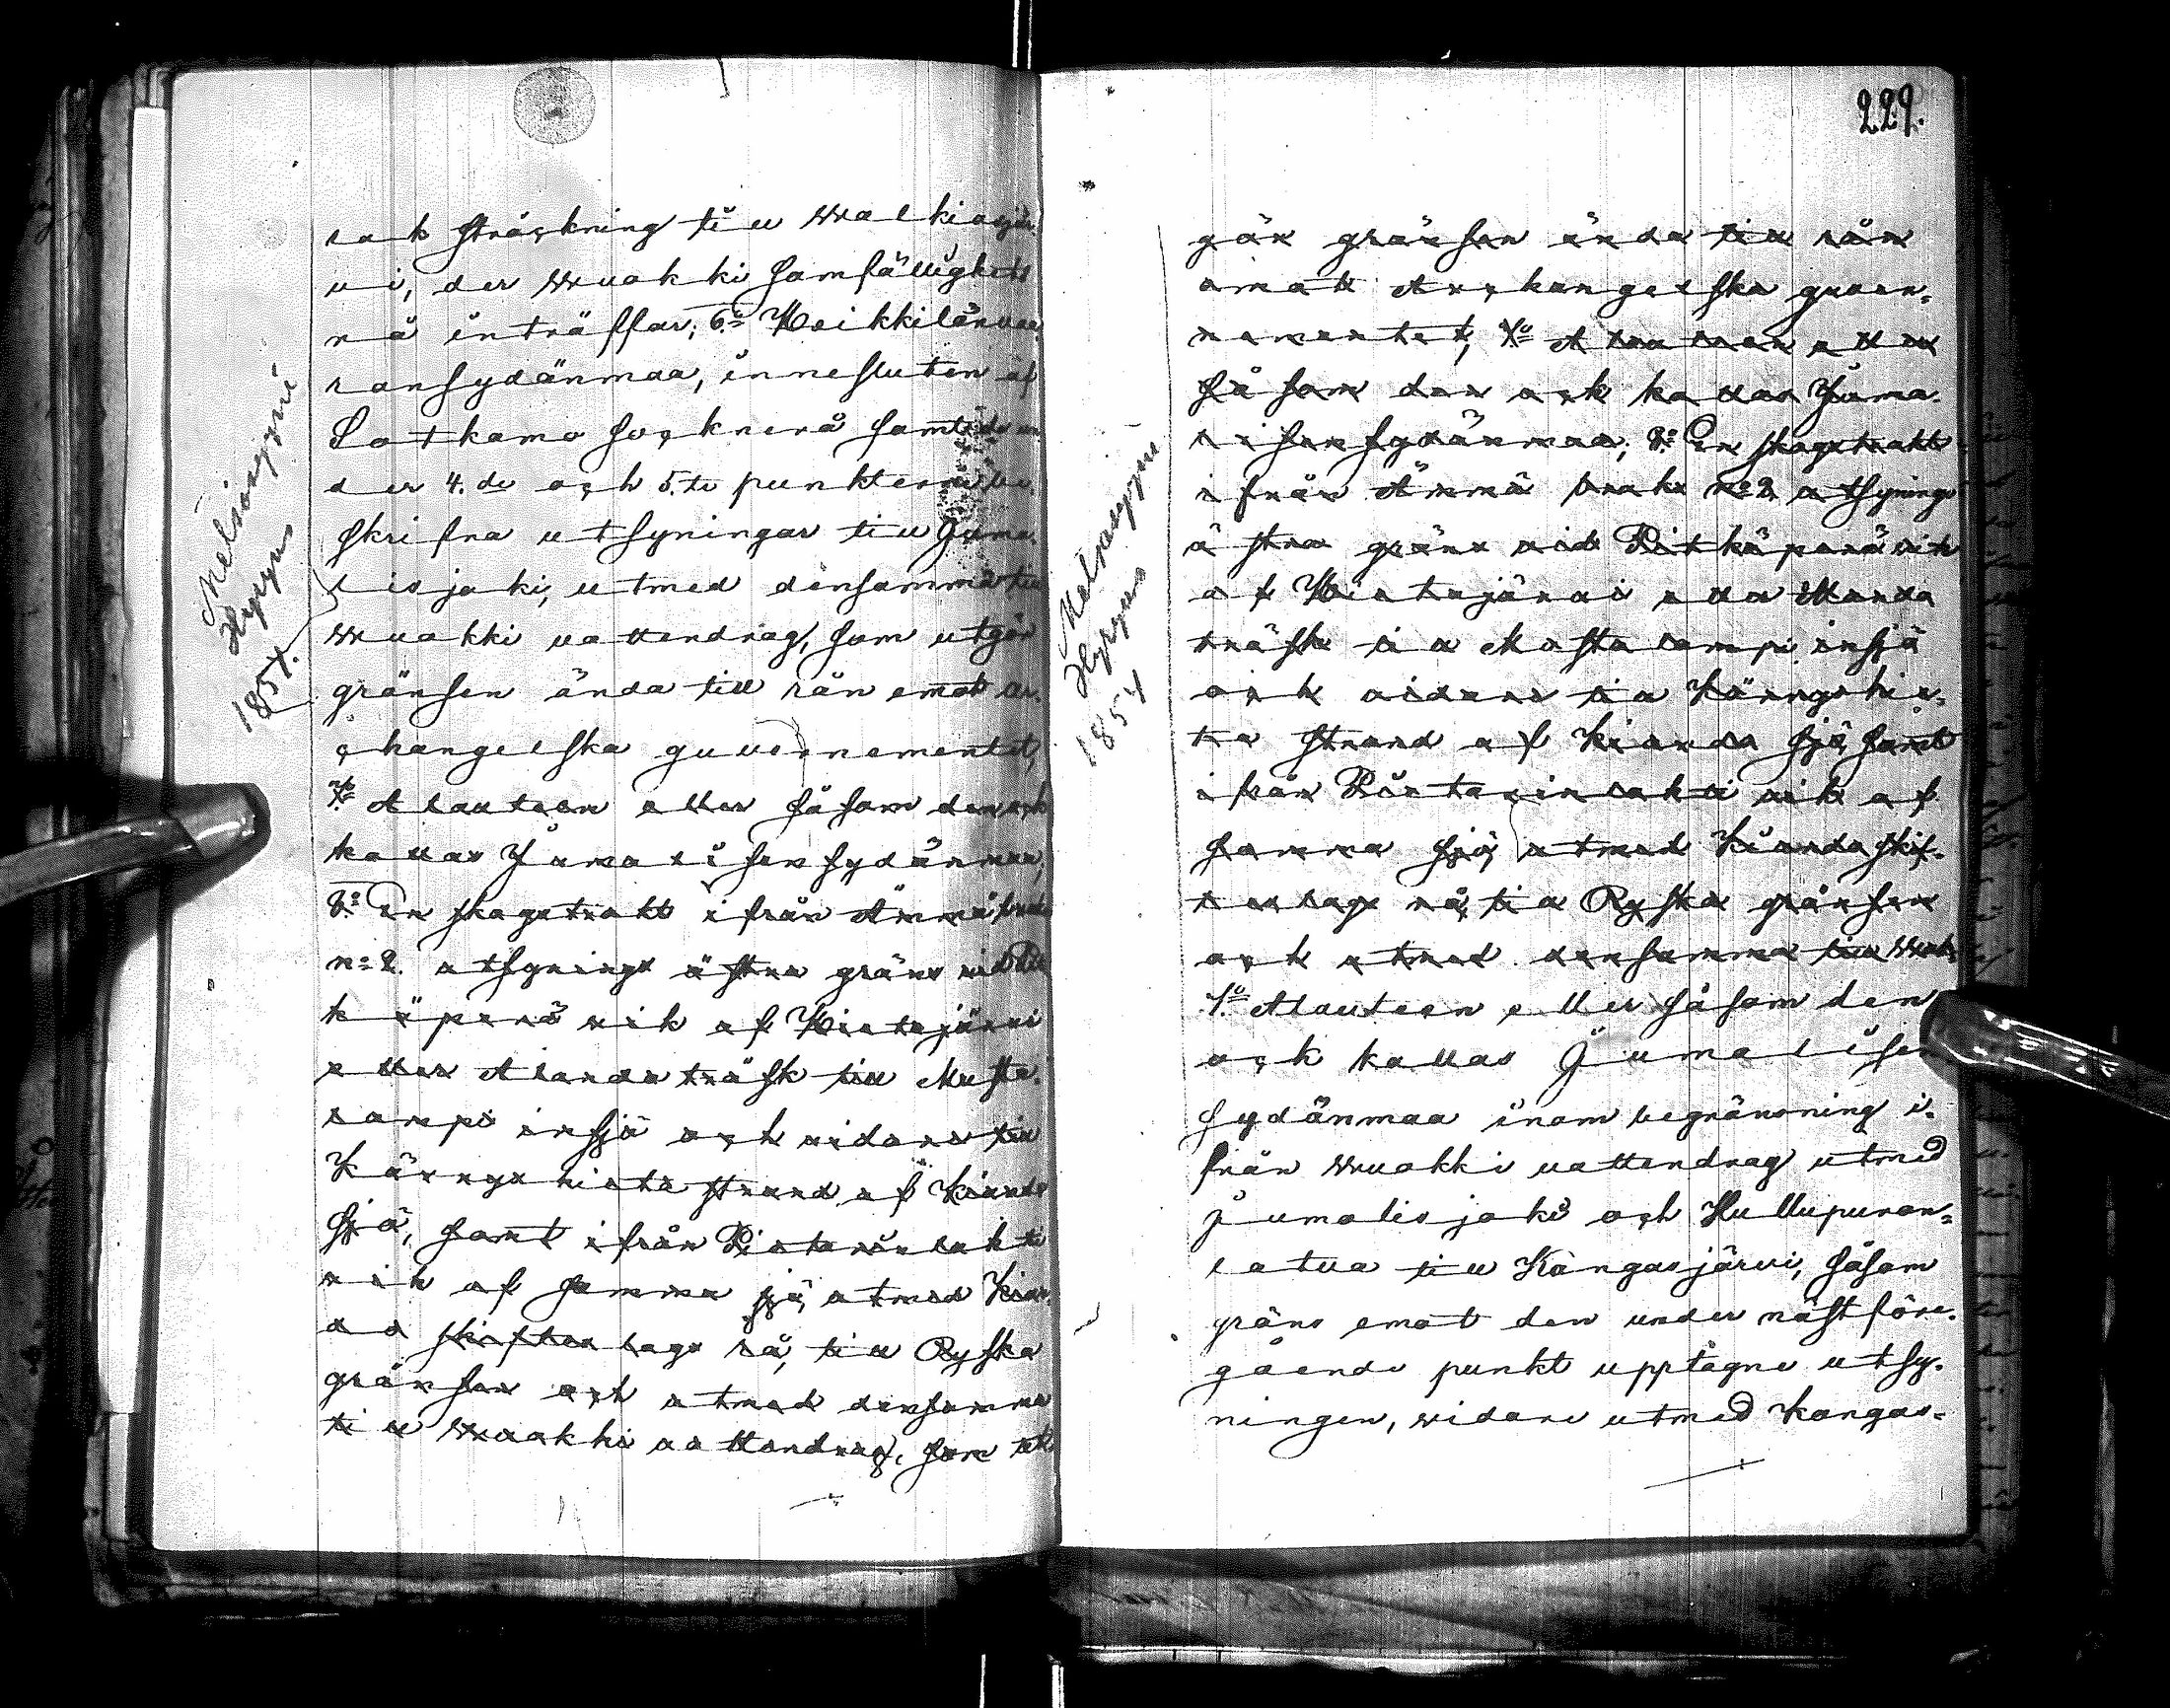 rak sträckning till Walkiajär-
vi, der Wuokki samfällighets
rå inträffar; 6:o Heikkilänwaa-
ransydänmaa, innesluten af
Sotkamo sockenrå samt de un-
der 4.de och 5.te punkterne be-
skrifna utsyningar till Juma-
lisjoki, utmed densamma till
Wuokki vattendrag, som utgör
gränsen ända till rån emot Ar-
changelska guvernementet,
7:o Alauteen eller såsom den och
kallas Jumalisensydänmaa;
8:o En skogstrakt ifrån Ämmä bruks
n:o 2. utsynings östra gräns vid Pit-
käperä vik af Hietajärvi
eller Alanda träsk till Musta-
lampi insjö och vidare till
Kärngshieta strand af Kianda
sjö, samt ifrån Pirtavinlahti
vik af samma sjö, utmed Kian-
da skifteslags rå, till Ryska
gränsen och utmed densamma
till Wuokki vattendrag, som ut-
Melsosyyni
Hyryns
1854.
229.
gör gränsen ända till rån
emot Archangelska guver-
nementet, 7:o Alauteen eller
såsom den och kallas Juma-
lisensydänmaa; 8:o En skogstrakt
ifrån Ämmä bruks n:o 2. utsynings
östra gräns vid Pitkäperä vik
af Hietajärvi eller Alanda
träsk till Mustalampi insjö
och vidare till Kärngshie-
ta strand af Kianda sjö, samt
ifrån Pirtavinlahti vik af
samma sjö, utmed Kianda skif-
teslags rå, till Ryska gränsen
och utmed densamma till Wuok-
7:o Alauteen eller såsom den
och kallas Jumalisen
sydänmaa inom begränsning i-
från Wuokki vattendrag utmed
Jumalisjoki och Hullupuron-
latva till Kangasjärvi, såsom
gräns emot den under nästföre-
gående punkt upptagne utsy-
ningen, widare utmed Kangas-
Melsosyyni
Hyryns
1854